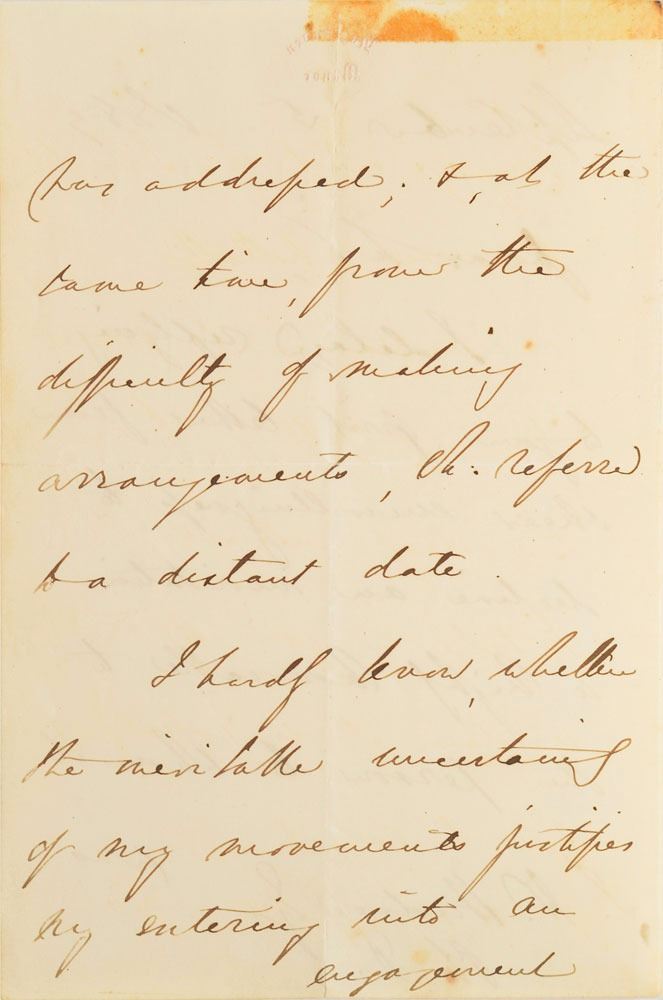 has addressed; &, at the
same time, from the
difficulty of making
arrangements, referred
to a distant date.
I hardly know whether
the inevitable uncertainty
of my movements justifies
my entering into an
engagement